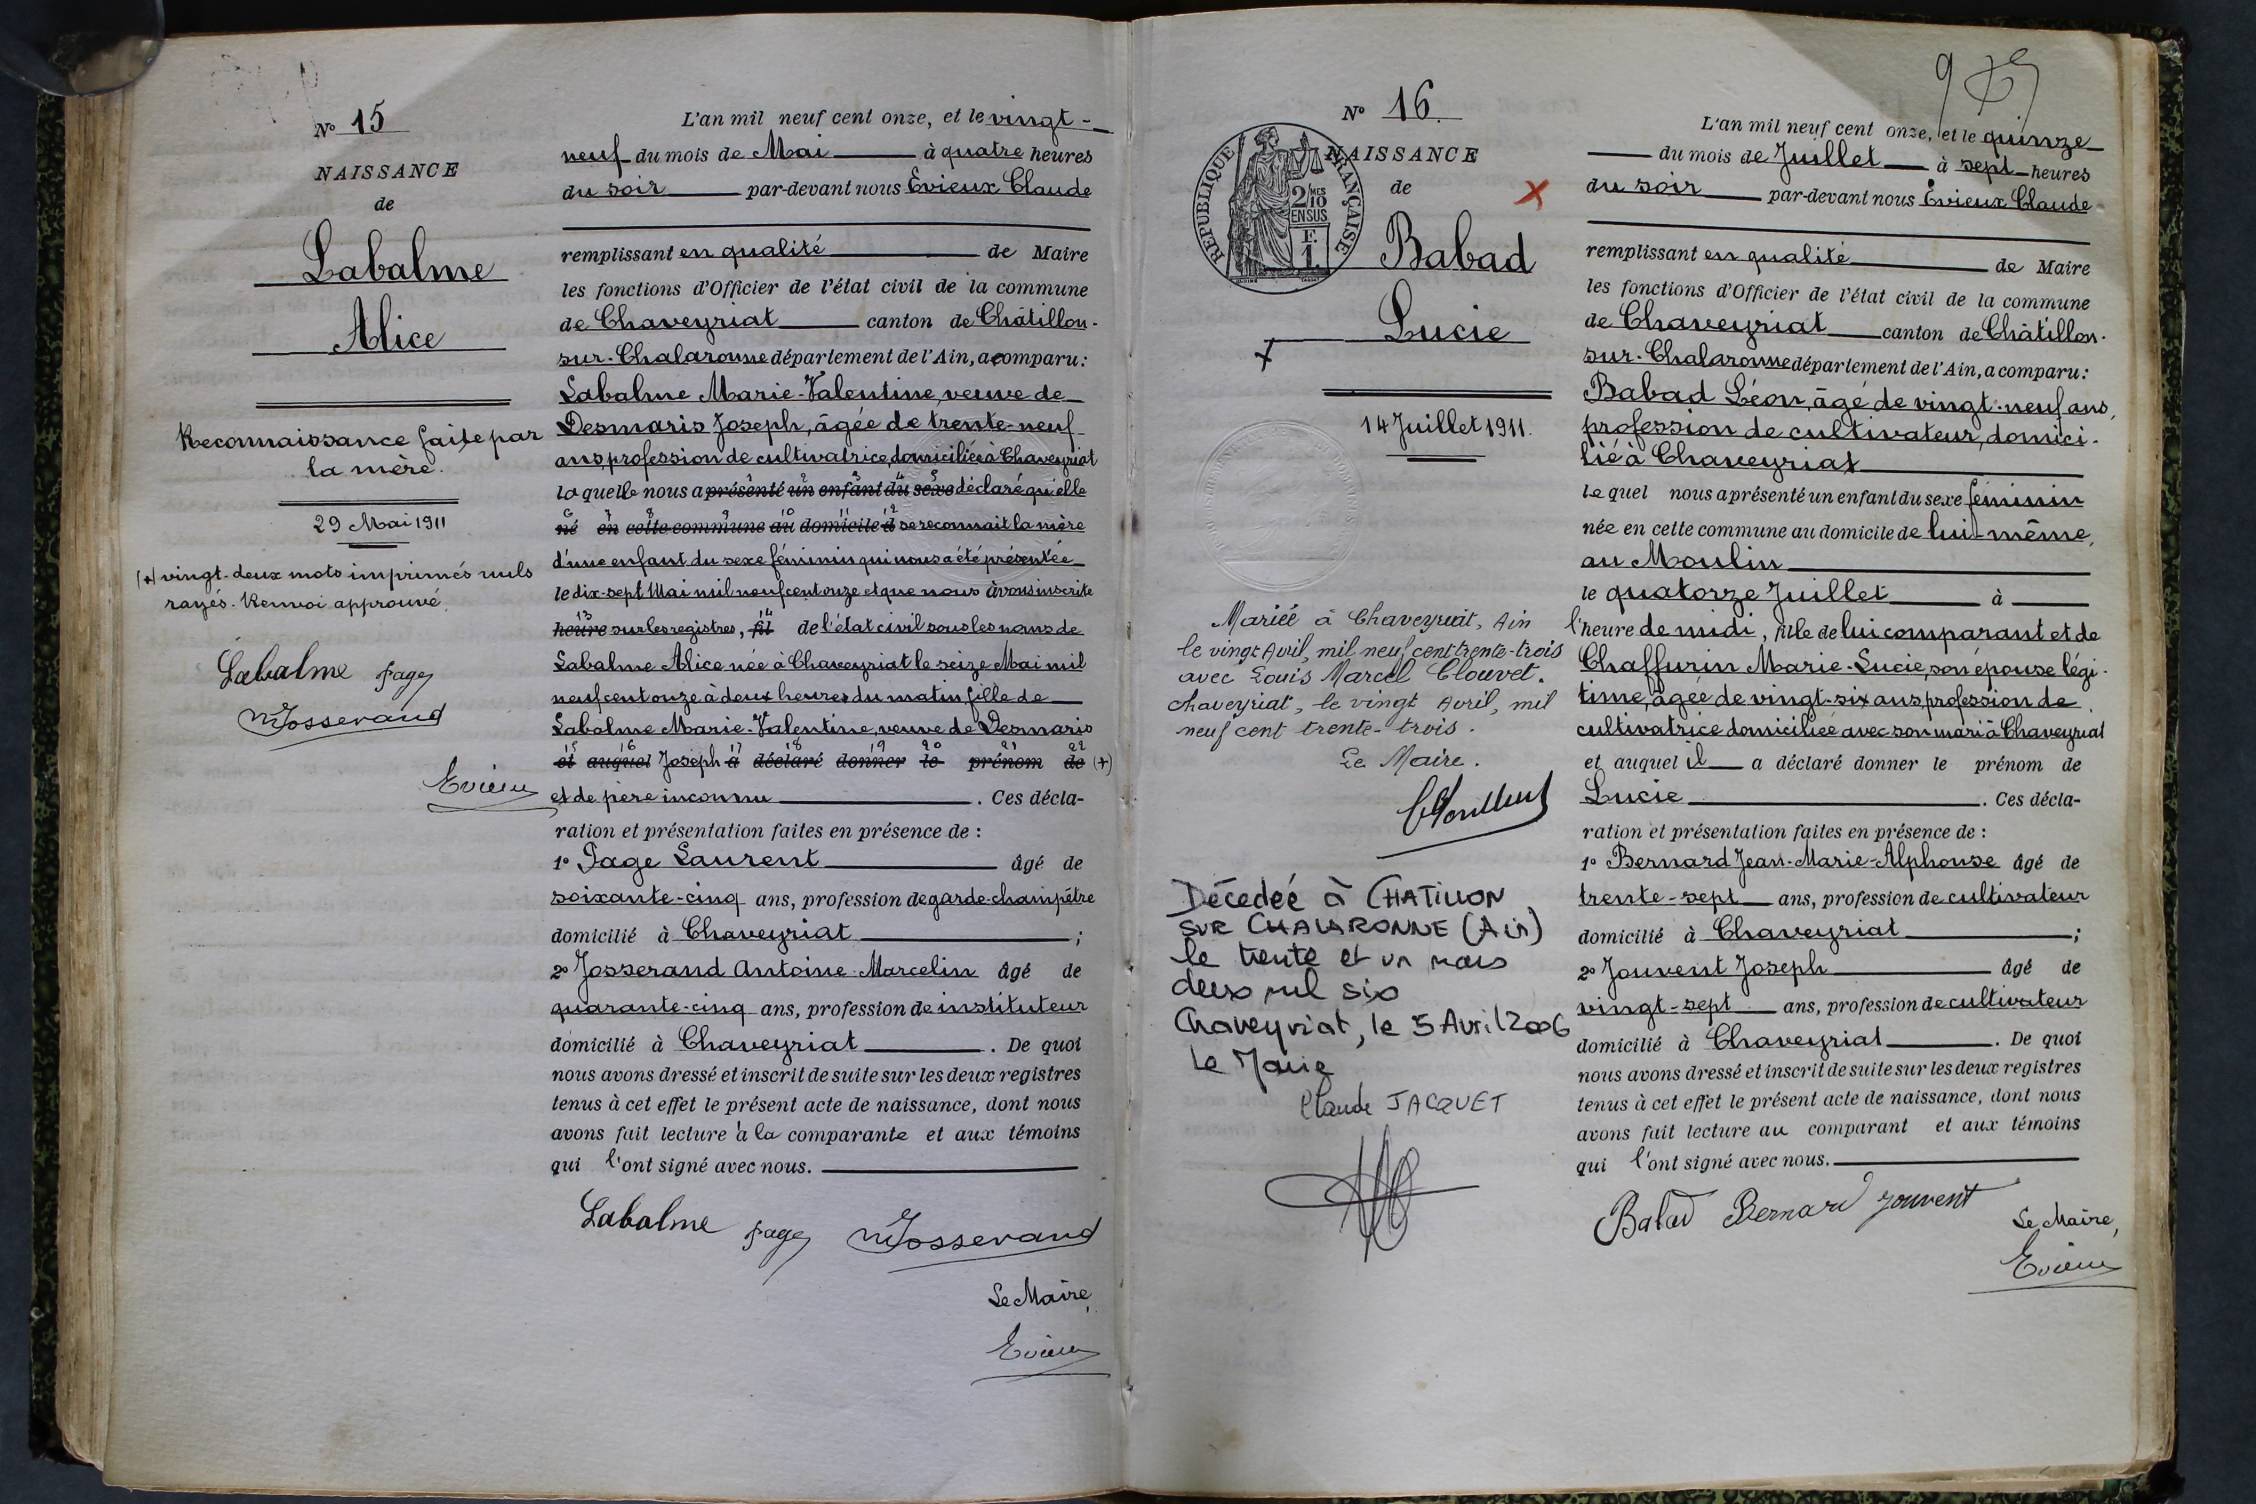 N° 15
NAISSANCE
de
Labalme
Alice
Reconnaissance faite par
la mère.
29 Mai 1911
(+) vingt-deux mots imprimés nuls
rayés. Renvoi approuvé.
Labalme Page
Josserand
Evieux
L'an mil neuf cent onze, et le vingt-
neuf du mois de Mai à quatre heures
du soir par-devant nous Evieux Claude
remplissant en qualité de Maire
les fonctions d'Officier de l'état civil de la commune
de Chaveyriat canton de Châtillon-
sur-Chalaronne département de l'Ain, a comparu :
Labalme Marie-Valentine, veuve de
Desmaris Joseph, âgée de trente-neuf
ans profession de cultivatrice, domiciliée à Chaveyriat
laquelle nous a présenté un enfant du sexe déclaré qu'elle
né en cette commune au domicile d se reconnait la mère
d'une enfant du sexe féminin qui nous a été présentée
le dix-sept Mai mil neuf cent onze et que nous avons inscrite
heure sur les registres, fil de l'état civil sous les noms de
Labalme Alice née à Chaveyriat le seize Mai mil
neuf cent onze à deux heures du matin fille de
Labalme Marie-Valentine, veuve de Desmaris
et auquel Joseph a déclaré donner le prénom de (+)
et de père inconnu . Ces décla-
ration et présentation faites en présence de :
1° Page Laurent âgé de
soixante-cinq ans, profession de garde-champêtre
domicilié à Chaveyriat ;
2° Josserand Antoine-Marcelin âgé de
quarante-cinq ans, profession de instituteur
domicilié à Chaveyriat . De quoi
nous avons dressé et inscrit de suite sur les deux registres
tenus à cet effet le présent acte de naissance, dont nous
avons fait lecture à la comparante et aux témoins
qui l'ont signé avec nous.
Labalme Page Josserand
Le Maire,
Evieux
N° 16
NAISSANCE
de
RÉPUBLIQUE FRANÇAISE
2 MES
10
EN SUS
F.
1.
Babad
Lucie
14 Juillet 1911.
Mariée à Chaveyriat, Ain
le vingt Avril, mil neuf cent trente-trois
avec Louis Marcel Clouvet.
Chaveyriat, le vingt Avril, mil
neuf cent trente-trois.
Le Maire.
Décedée à CHATILLON
SUR CHALARONNE (Ain)
le trente et un mars
deux mil six
Chaveyriat, le 5 Avril 2006
Le Maire
Claude JACQUET
L'an mil neuf cent onze, et le quinze
du mois de Juillet à sept heures
du soir par-devant nous Evieux Claude
remplissant en qualité de Maire
les fonctions d'Officier de l'état civil de la commune
de Chaveyriat canton de Châtillon-
sur-Chalaronne département de l'Ain, a comparu :
Babad Léon, âgé de vingt-neuf ans,
profession de cultivateur, domici-
lié à Chaveyriat
lequel nous a présenté un enfant du sexe féminin
née en cette commune au domicile de lui-même,
au Moulin
le quatorze Juillet à
l'heure de midi, fille de lui comparant et de
Chaffurin Marie-Lucie, son épouse légi-
time, âgée de vingt-six ans, profession de
cultivatrice domiciliée avec son mari à Chaveyriat
et auquel il a déclaré donner le prénom de
Lucie . Ces décla-
ration et présentation faites en présence de :
1° Bernard Jean-Marie-Alphonse âgé de
trente-sept ans, profession de cultivateur
domicilié à Chaveyriat ;
2° Jouvent Joseph âgé de
vingt-sept ans, profession de cultivateur
domicilié à Chaveyriat . De quoi
nous avons dressé et inscrit de suite sur les deux registres
tenus à cet effet le présent acte de naissance, dont nous
avons fait lecture au comparant et aux témoins
qui l'ont signé avec nous.
Babad Bernard Jouvent
Le Maire,
Evieux